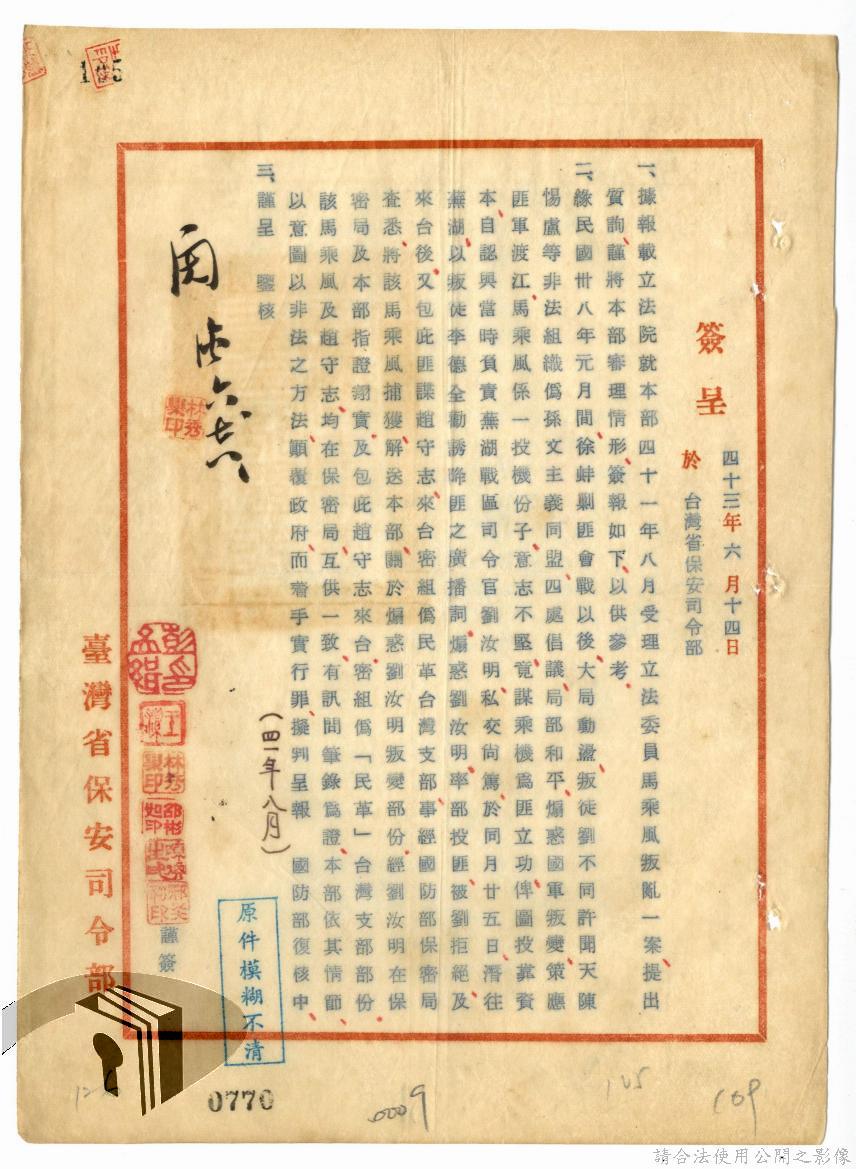 簽呈
四十三年六月十四日
於台灣省保安司令部
一、據報載立法院就本部四十一年八月受理立法委員馬乘風叛亂一案提出
質詢謹將本部審理情形簽報如下以供參考
二、緣民國卅八年元月間徐蚌剿匪會戰以後大局動盪叛徒劉不同許聞天陳
惕盧等非法組織爲孫文主義同盟四處倡議局部和平煽惑國軍叛變策應
匪軍渡江馬乘風係一投機份子意志不堅竟謀乘機爲匪立功俾圖投靠資
本自認與當時負責蕪湖戰區司令官劉汝明私交尚篤於同月廿五日潛往
蕪湖以叛徒李德全勸誘降匪之廣播詞煽惑劉汝明率部投匪被劉拒絕及
來台後又包庇匪諜趙守志來台密組爲民革台灣支部事經國防部保密局
查悉將該馬乘風捕獲解送本部關於煽惑劉汝明叛變部份經劉汝明在保
密局及本部指證翔實及包庇趙守志來台密組爲「民革」台灣支部部份
該馬乘風及趙守志均在保密局互供一致有訊問筆錄爲證本部依其情節
以意圖以非法之方法顚覆政府而着手實行罪擬判呈報　國防部復核中
(四一年八月)
三、謹呈　鑒核
林秀欒印
林秀欒印
謹簽
臺灣省保安司令部
原件模糊不清
0770
0009
105
109
請合法使用公開之影像